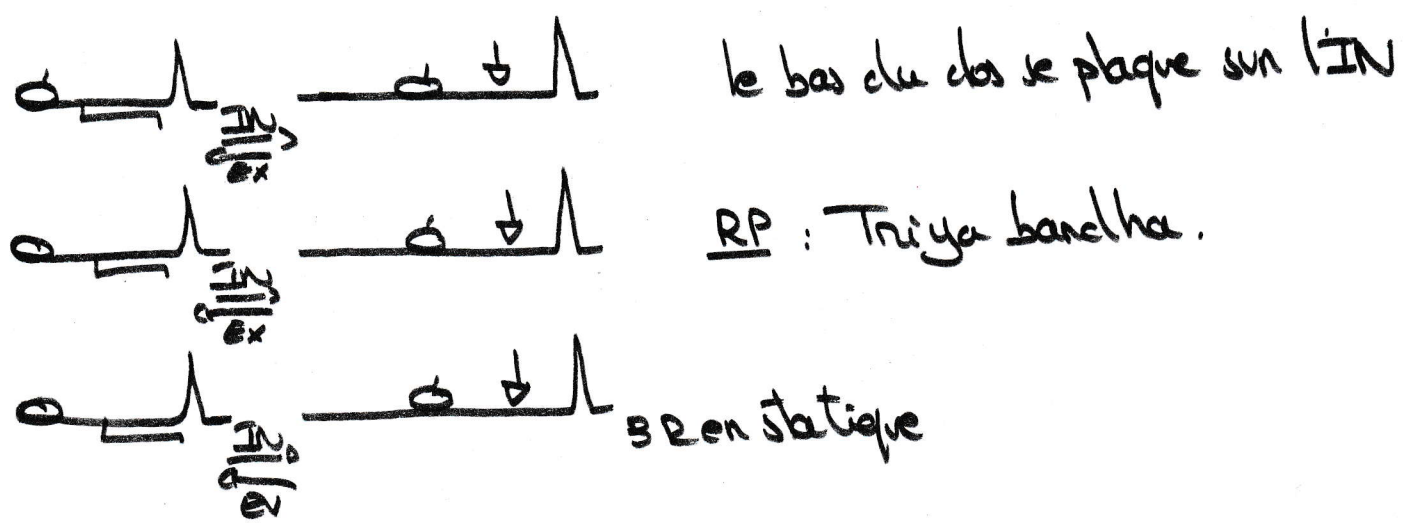 le bas du dos se plaque sur l'IN
IN
Ex
RP : Triya bandha.
IN
Ex
3 R en statique
IN